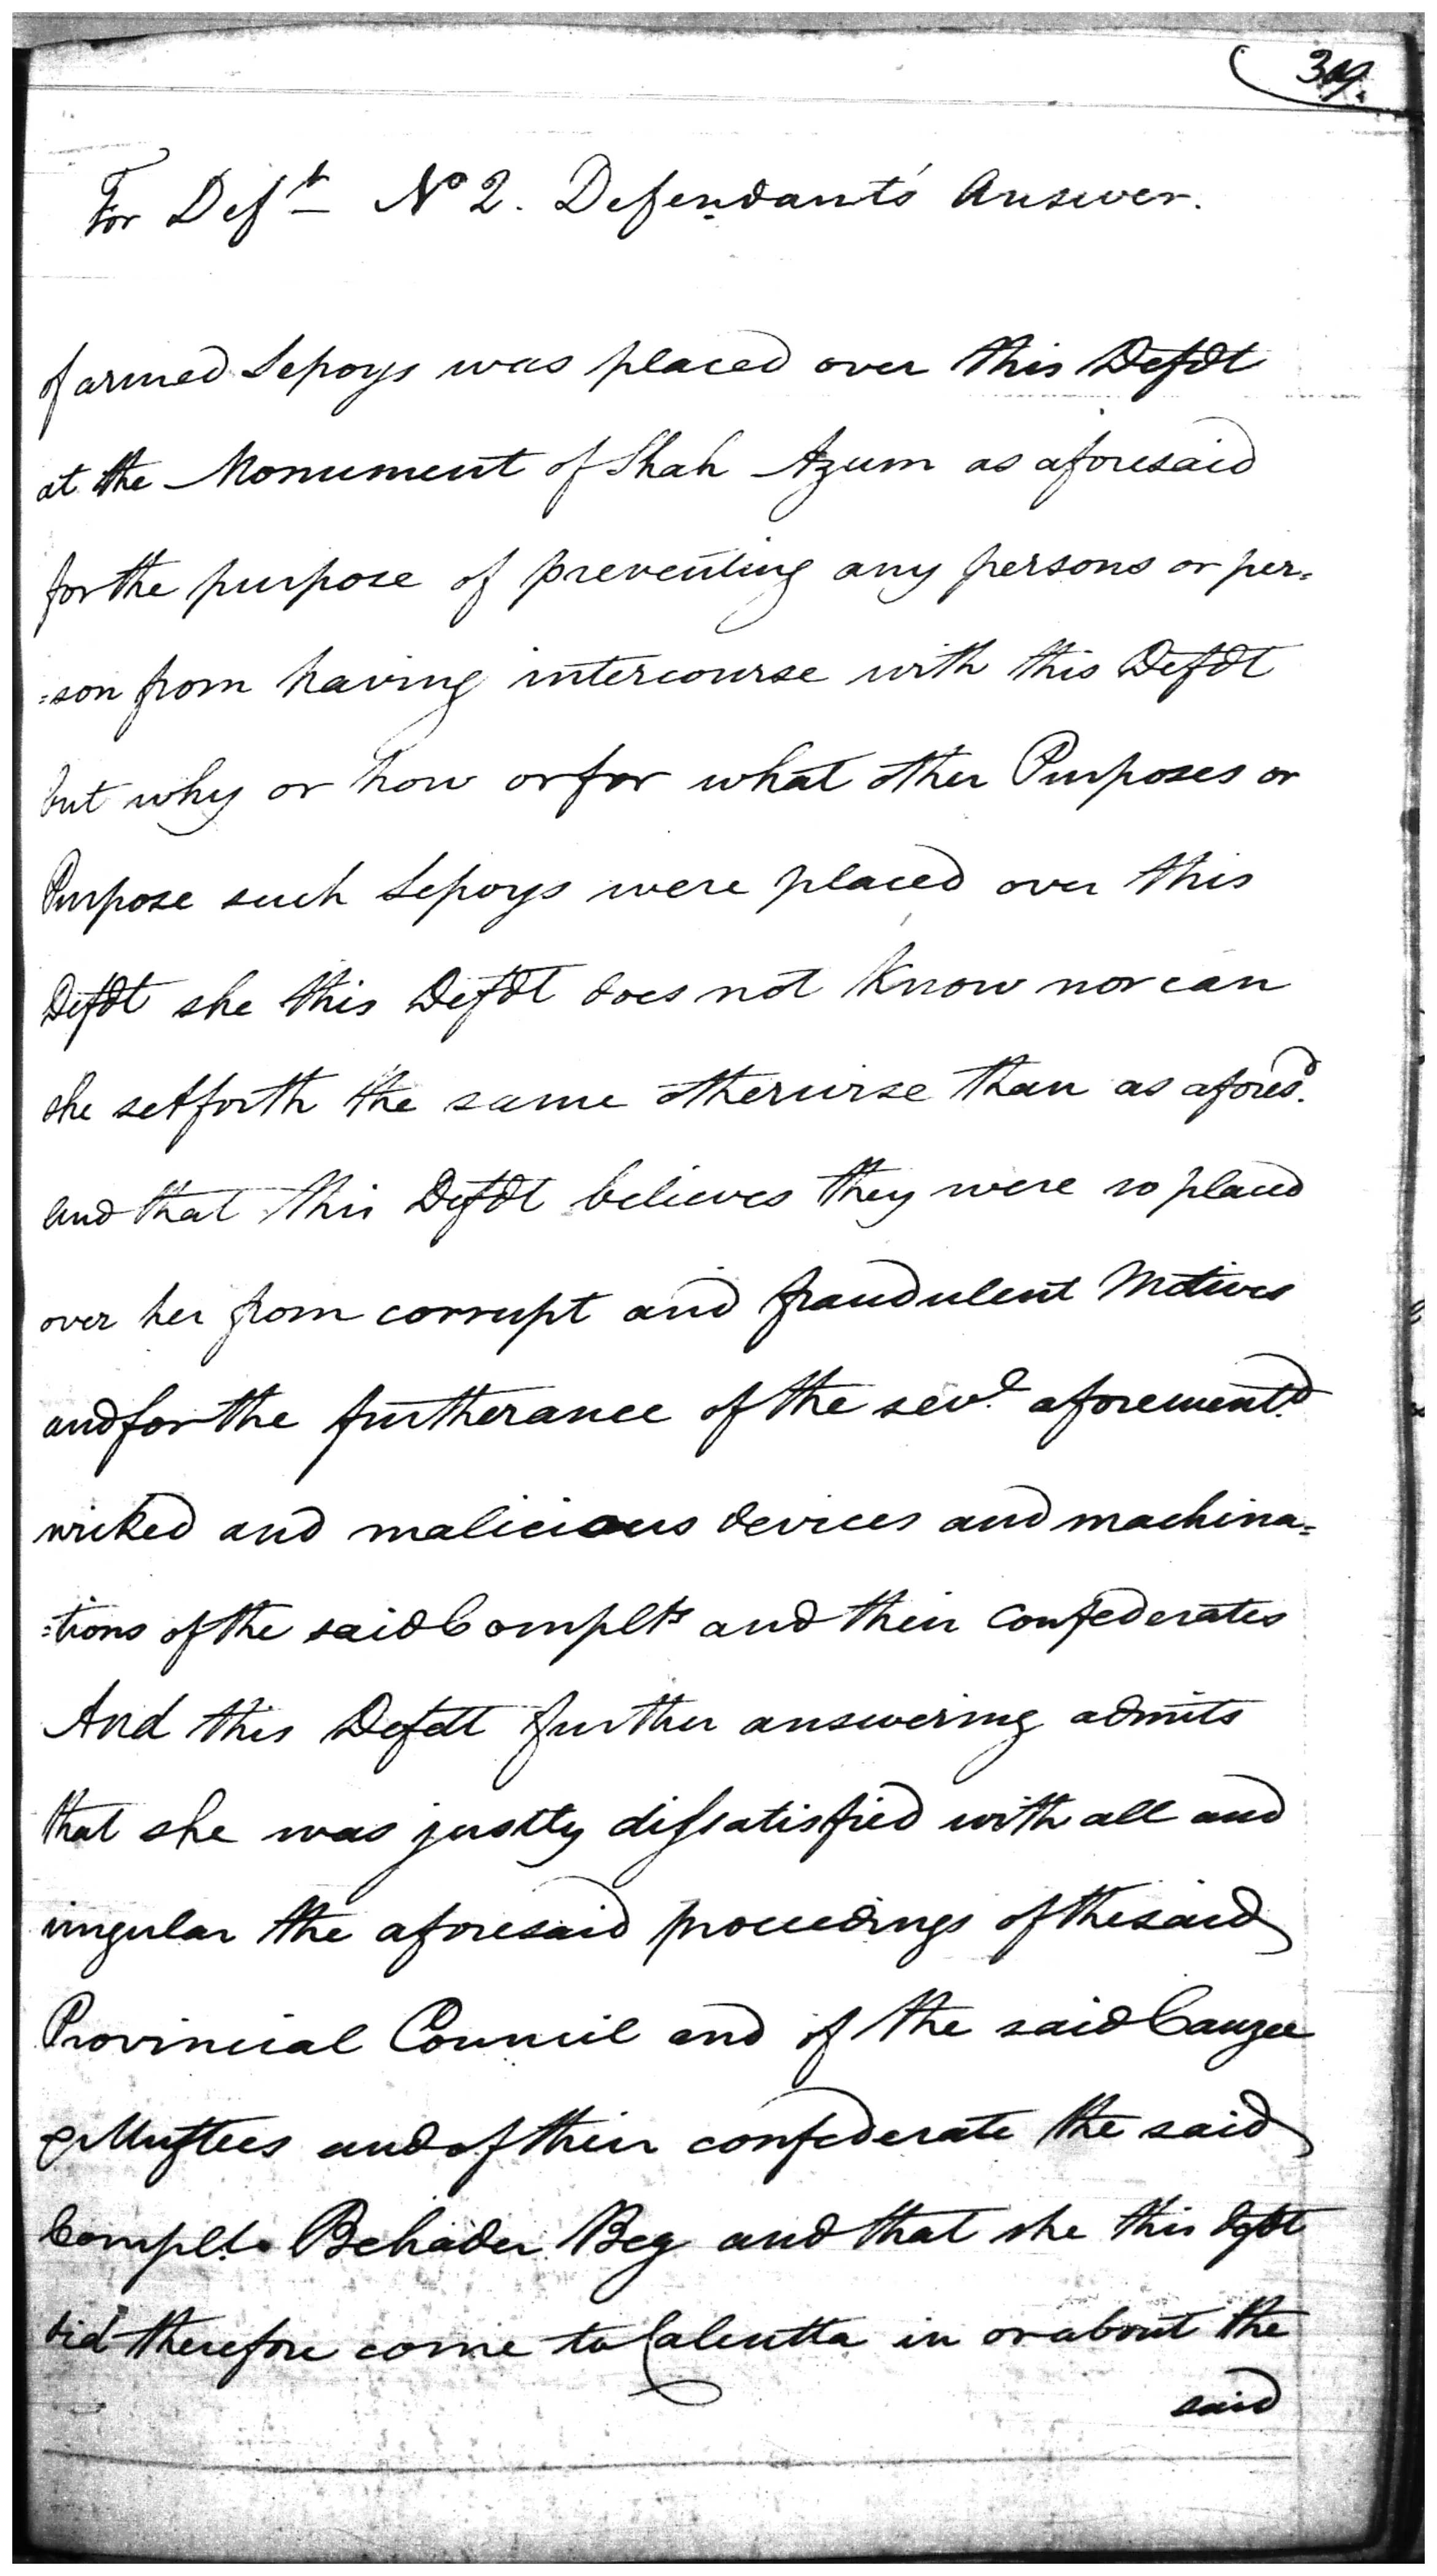 For Deft. No 2. Defendant's Answer.
of armed Sepoys was placed over this Defdt
at the Monument of Shah Azum as aforesaid
for the purpose of preventing any persons or per=
=son from having intercourse with this Defdt
but why or how or for what other Purposes or
Purpose such Sepoys were placed over this
Defdt she this Defdt does not know nor can
she set forth the same otherwise than as aforesd.
and that this Defdt believes they were so placed
over her from corrupt and fraudulent Motives
and for the furtherance of the sevl. aforementd.
wicked and malicious devices and machina=
=tions of the said Complts and their confederates
And this Defdt further answering admits
that she was justly dissatisfied with all and
singular the aforesaid proceedings of the said
Provincial Council and of the said Cauzee
& Muftees and of their confederate the said
Complt. Behader Beg and that she this defdt
did therefore come to Calcutta in or about the
said